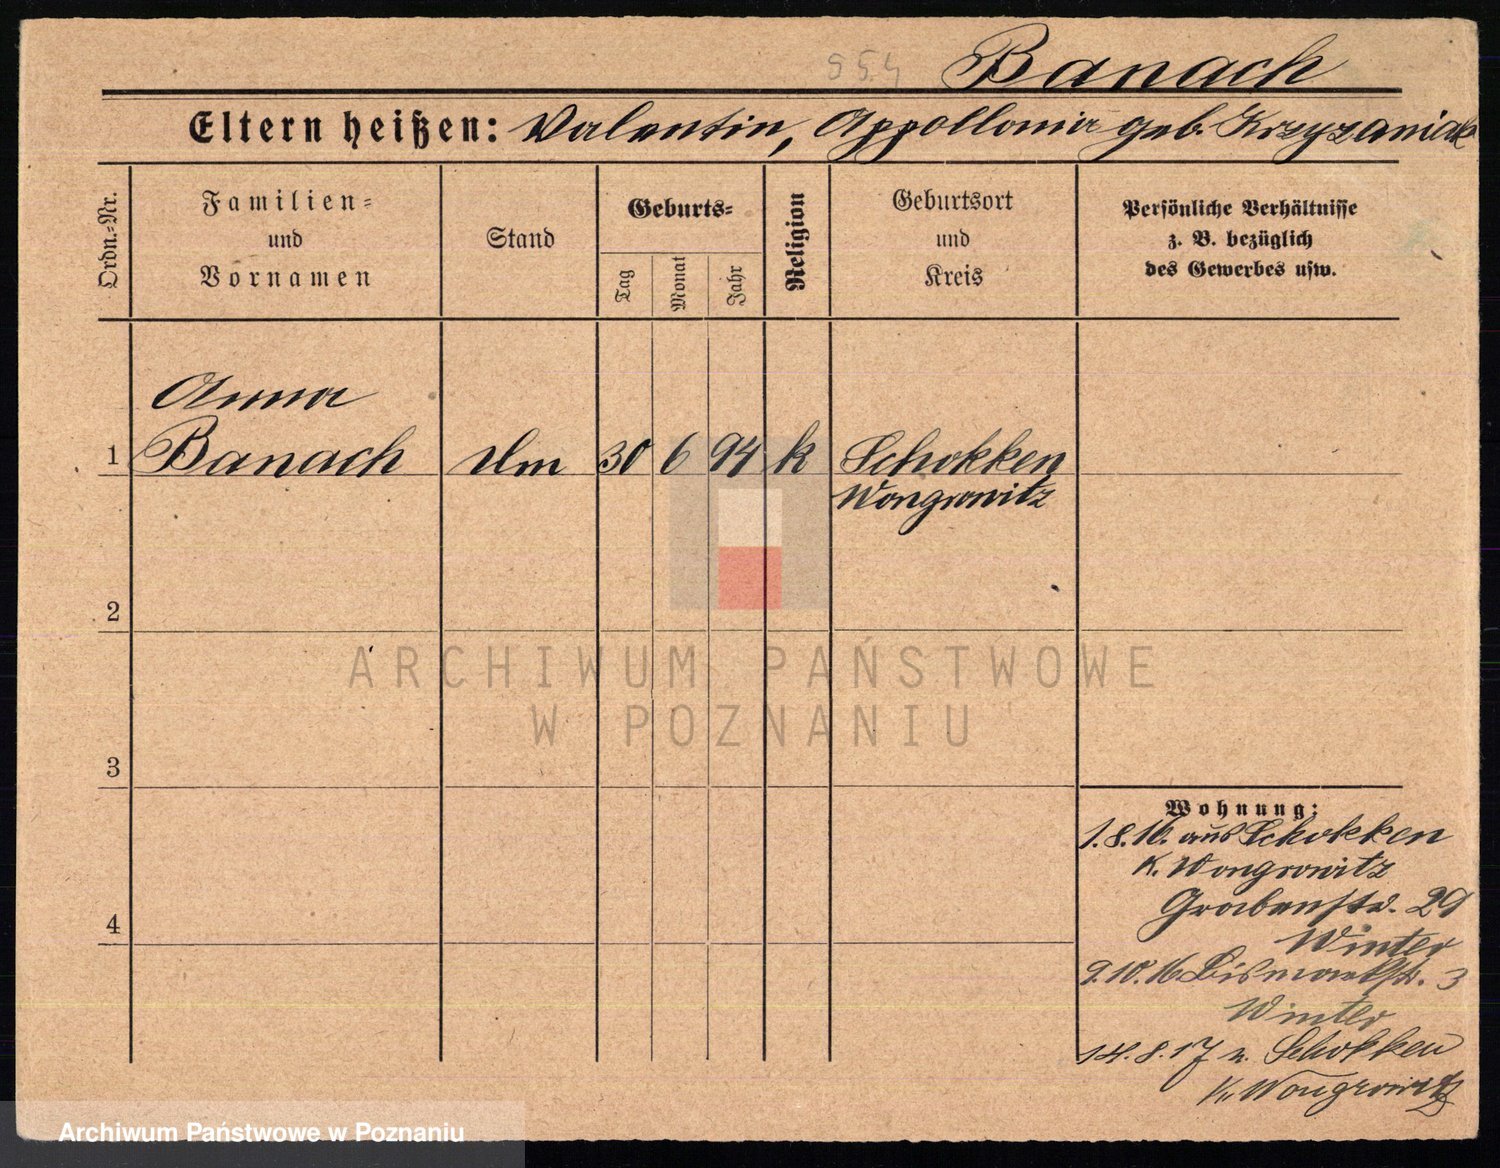 Banach
Eltern heißen: Valentin, Appollonia geb. Krzyzaniak
Ordn.-Nr.
Familien-
und
Vornamen
Stand
Geburts-
Tag
Monat
Jahr
Religion
Geburtsort
und
Kreis
Persönliche Verhältnisse
z. B. bezüglich
des Gewerbes usw.
Anna
1 Banach 30 6 94 k Schokken
Wongrowitz
2
3
4
Wohnung:
1.8.16. aus Schokken
K. Wongrowitz
Grabenstr. 29
Winter
9.10.16 Bismarckstr. 3
Winter
14.8.17 n. Schokken
K. Wongrowitz
ARCHIWUM PAŃSTWOWE
W POZNANIU
Archiwum Państwowe w Poznaniu